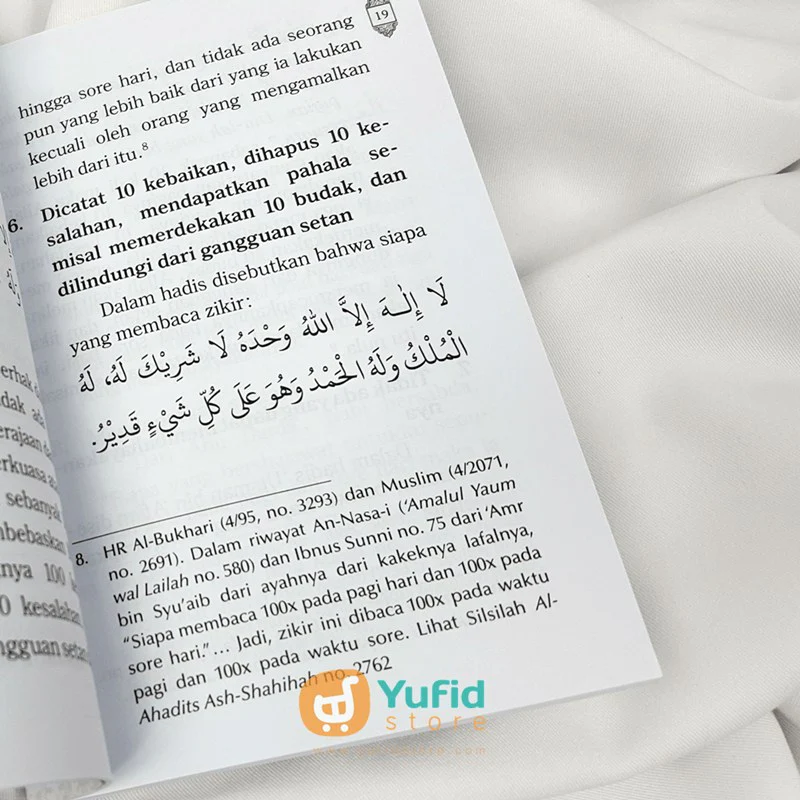 19
hingga sore hari, dan tidak ada seorang
pun yang lebih baik dari yang ia lakukan
kecuali oleh orang yang mengamalkan
lebih dari itu.⁸
6. Dicatat 10 kebaikan, dihapus 10 ke-
salahan, mendapatkan pahala se-
misal memerdekakan 10 budak, dan
dilindungi dari gangguan setan
Dalam hadis disebutkan bahwa siapa
yang membaca zikir:
لَا إِلٰـهَ إِلاَّ اللهُ وَحْدَهُ لَا شَرِيْكَ لَهُ، لَهُ
الْمُلْكُ وَلَهُ الْحَمْدُ وَهُوَ عَلَى كُلِّ شَيْءٍ قَدِيْرُ.
8. HR Al-Bukhari (4/95, no. 3293) dan Muslim (4/2071,
no. 2691). Dalam riwayat An-Nasa-i (‘Amalul Yaum
wal Lailah no. 580) dan Ibnus Sunni no. 75 dari ‘Amr
bin Syu’aib dari ayahnya dari kakeknya lafalnya,
“Siapa membaca 100x pada pagi hari dan 100x pada
sore hari.”... Jadi, zikir ini dibaca 100x pada waktu
pagi dan 100x pada waktu sore. Lihat Silsilah Al-
Ahadits Ash-Shahihah no. 2762
sebanyak
nya 100
0 kesalahan
Yufid
store